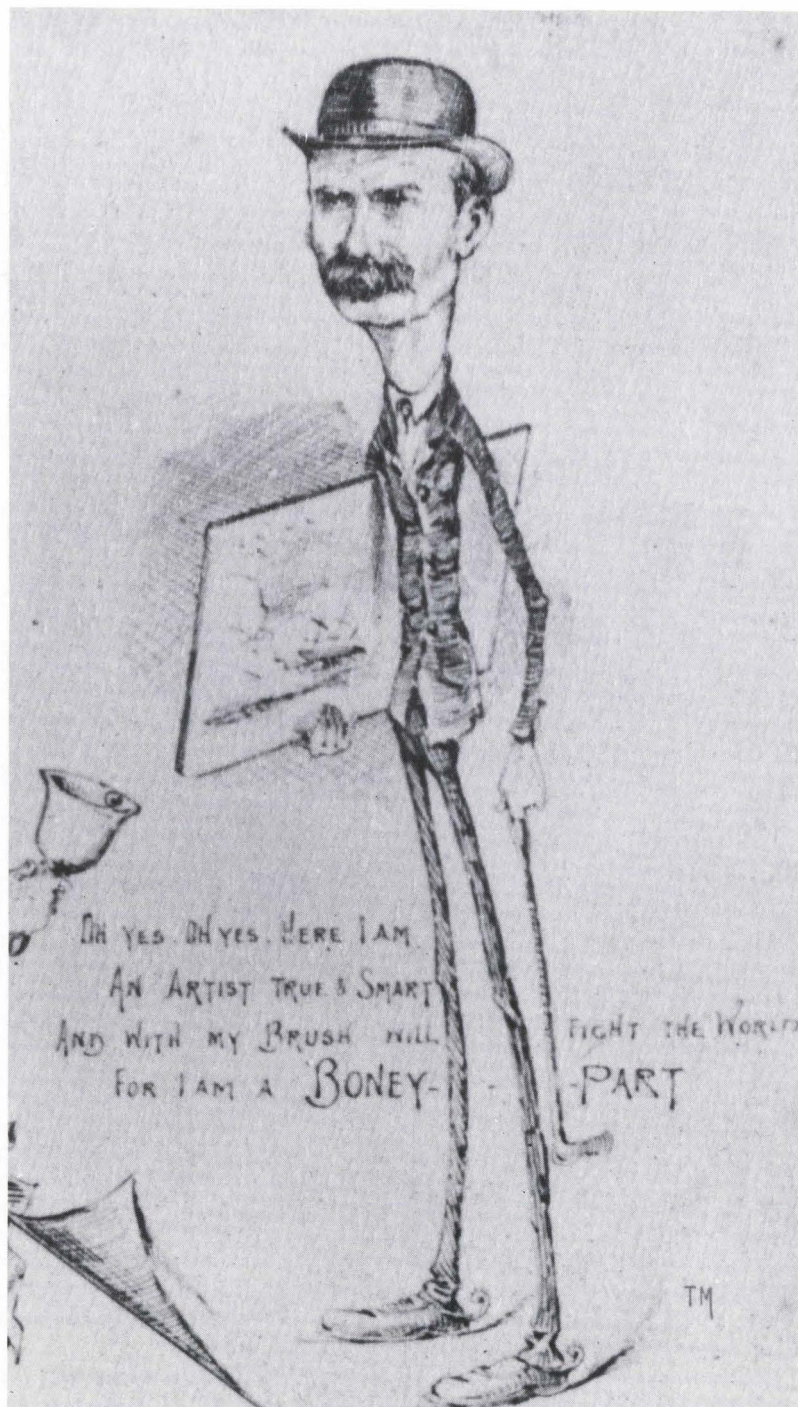 OH YES. OH YES. HERE I AM.
AN ARTIST TRUE & SMART
AND WITH MY BRUSH WILL FIGHT THE WORLD
FOR I AM A BONEY- - -PART
TM